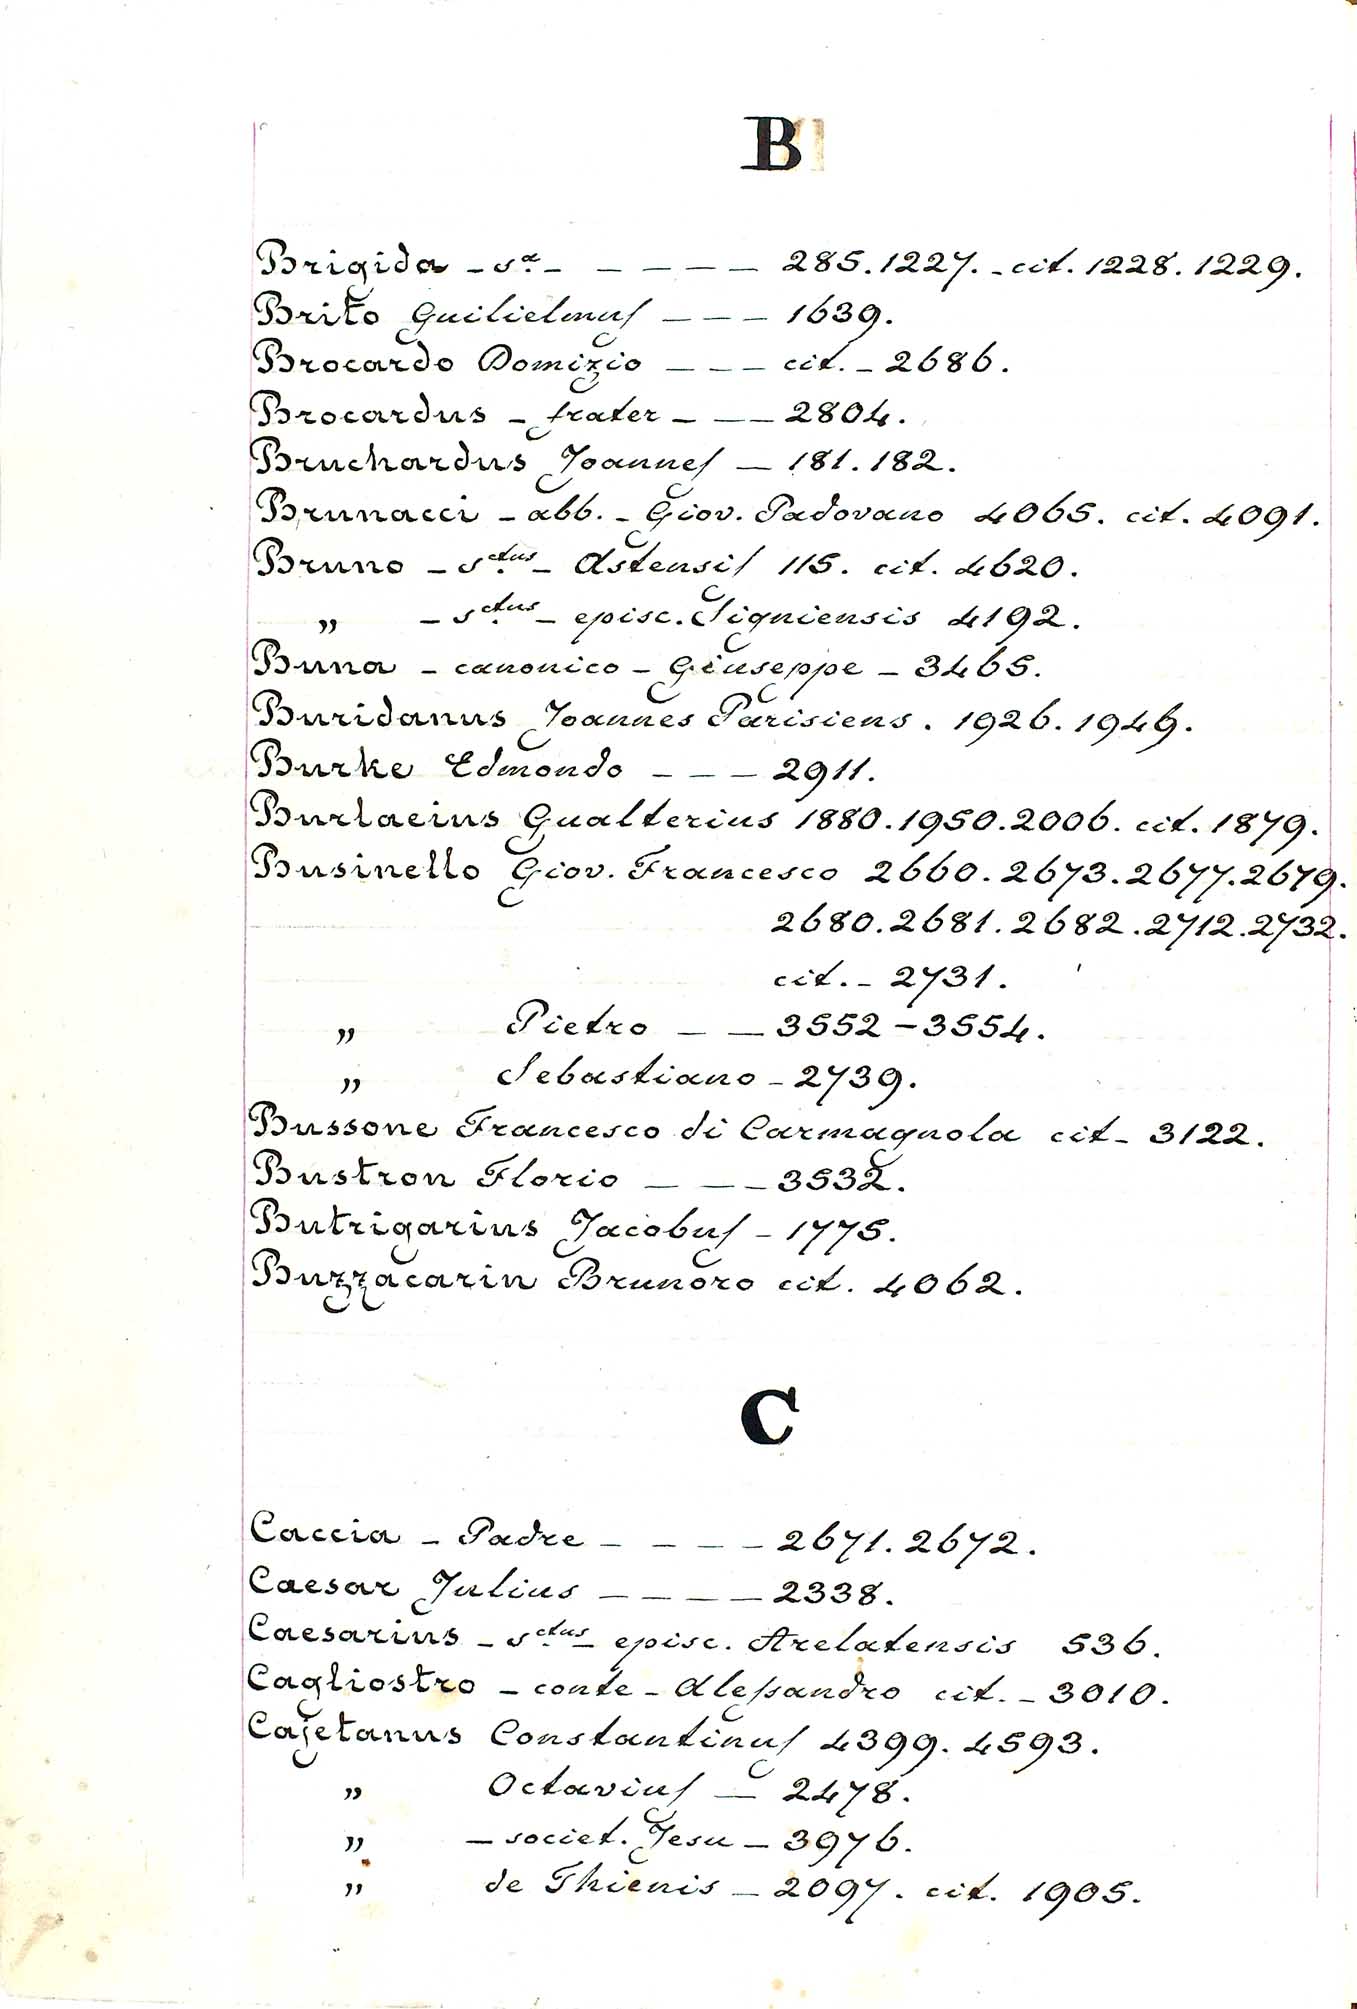 B
Brigida - sa. - - - - - 285. 1227. - cit. 1228. 1229.
Brito Guilielmus - - - 1639.
Brocardo Domizio - - - cit. - 2686.
Brocardus - frater - - - 2804.
Bruchardus Joannes - 181. 182.
Brunacci - abb. - Giov. Padovano 4065. cit. 4091.
Bruno - sctus - Astensis 115. cit. 4620.
„ - sctus - episc. Signiensis 4192.
Buna - canonico - Giuseppe - 3465.
Buridanus Joannes Parisiens. 1926. 1949.
Burke Edmondo - - - 2911.
Burlaeius Gualterius 1880. 1950. 2006. cit. 1879.
Businello Giov. Francesco 2660. 2673. 2677. 2679.
2680. 2681. 2682. 2712. 2732.
cit. - 2731.
„ Pietro - - 3552 - 3554.
„ Sebastiano - 2739.
Bussone Francesco di Carmagnola cit - 3122.
Bustron Florio - - - 3532.
Butrigarius Jacobus - 1775.
Buzzacarin Brunoro cit. 4062.
C
Caccia - Padre - - - - 2671. 2672.
Caesar Julius - - - - 2338.
Caesarius - sctus - episc. Arelatensis 536.
Cagliostro - conte - Alessandro cit. - 3010.
Cajetanus Constantinus 4399. 4593.
„ Octavius - 2478.
„ - societ. Jesu - 3976.
„ de Thienis - 2097. cit. 1905.